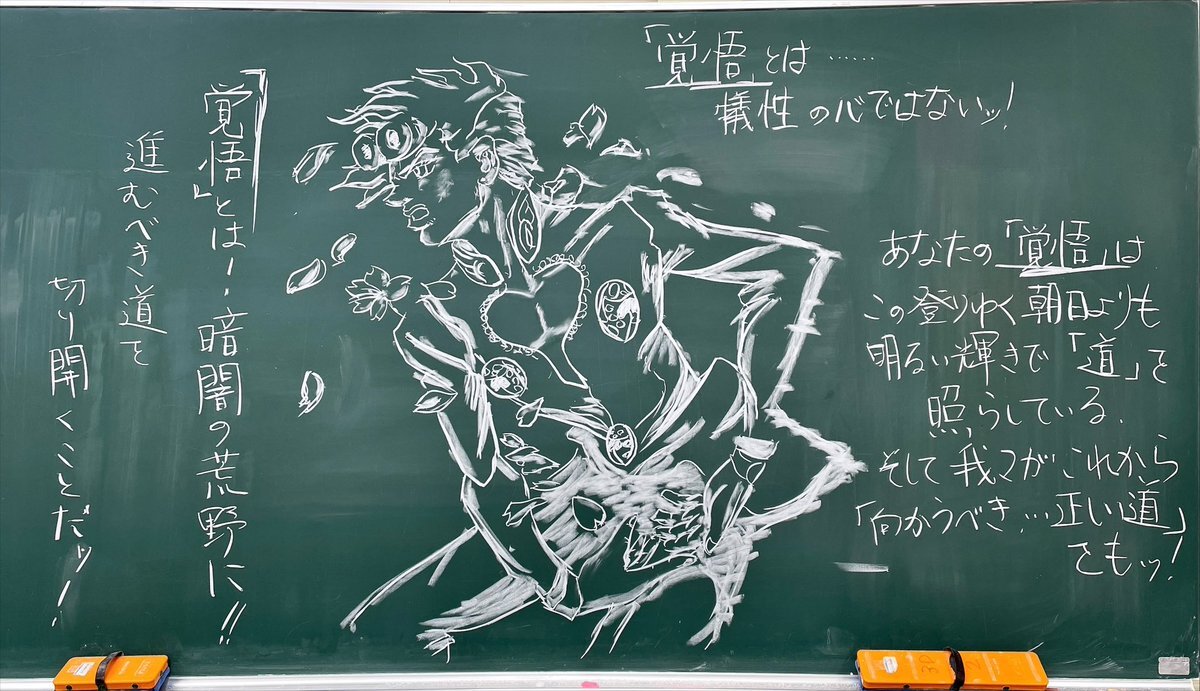 「覚悟」とは……
犠牲の心ではないッ!
あなたの「覚悟」は
この登りゆく朝日よりも
明るい輝きで「道」を
照らしている.
そして我々がこれから
「向かうべき…正い道」
をもッ!
「覚悟」とは!暗闇の荒野に!!
進むべき道を
切り開くことだッ!